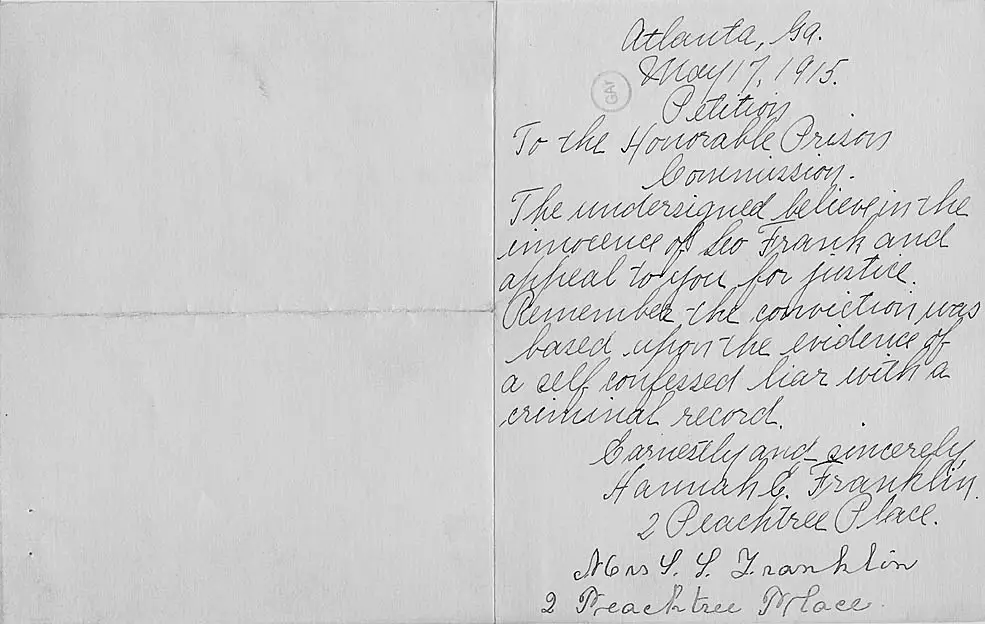 Atlanta, Ga.
May 17, 1915.
GAY
Petition
To the Honorable Prison
Commission.
The undersigned believe in the
innocence of Leo Frank and
appeal to you for justice.
Remember the conviction was
based upon the evidence of
a self confessed liar with a
criminal record.
Earnestly and sincerely
Hannah E. Franklin.
2 Peachtree Place.
Mrs S. S. Franklin
2 Peachtree Place.